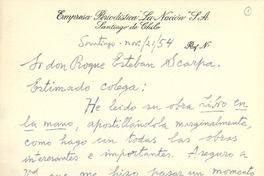 1
Empresa Periodística "La Nación" S.A.
Santiago de Chile
Santiago - nov/21/54 Ref. N.
Sr don Roque Esteban Scarpa.
Estimado colega:
He leido su obra Libro en
la mano, apostillándola marginalmente,
como hago con todas las obras
interesantes e importantes. Aseguro a
Ud que me hizo pasar un momento